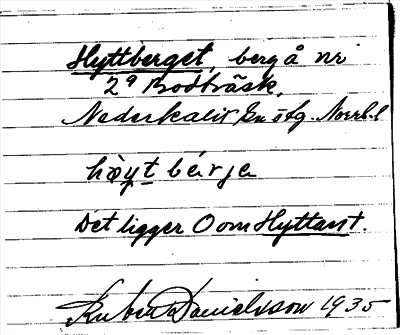 Hyttberget, berg å nr
2⁹ Bodträsk,
Nederkalix sn
hö̀yt bérja
Det ligger O om Hyttarst.
Ruben Danielsson 1935